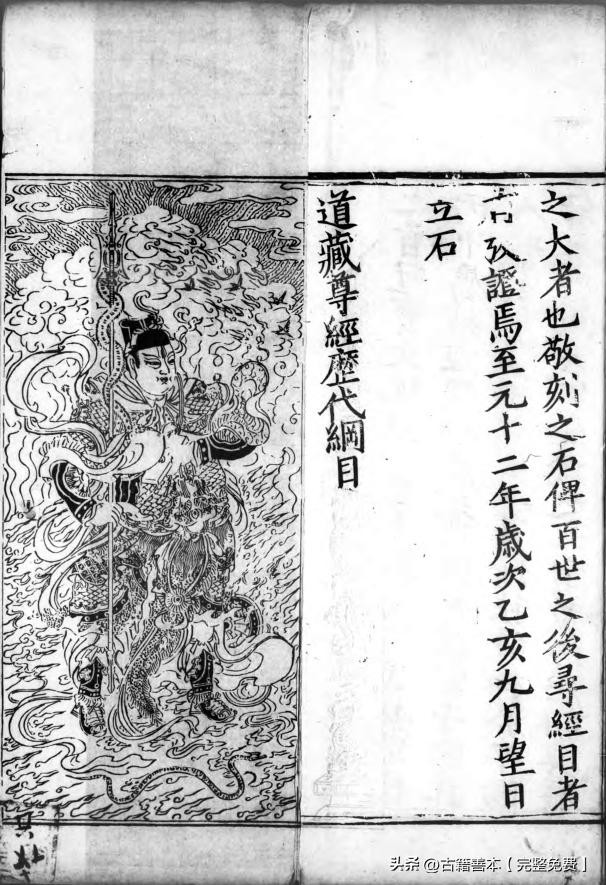 之大者也敬刻之石俾百世之後尋經目者
攷證焉至元十二年歲次乙亥九月望日
立石
道藏尊經歷代綱目
头条 @古籍善本【完整免费】